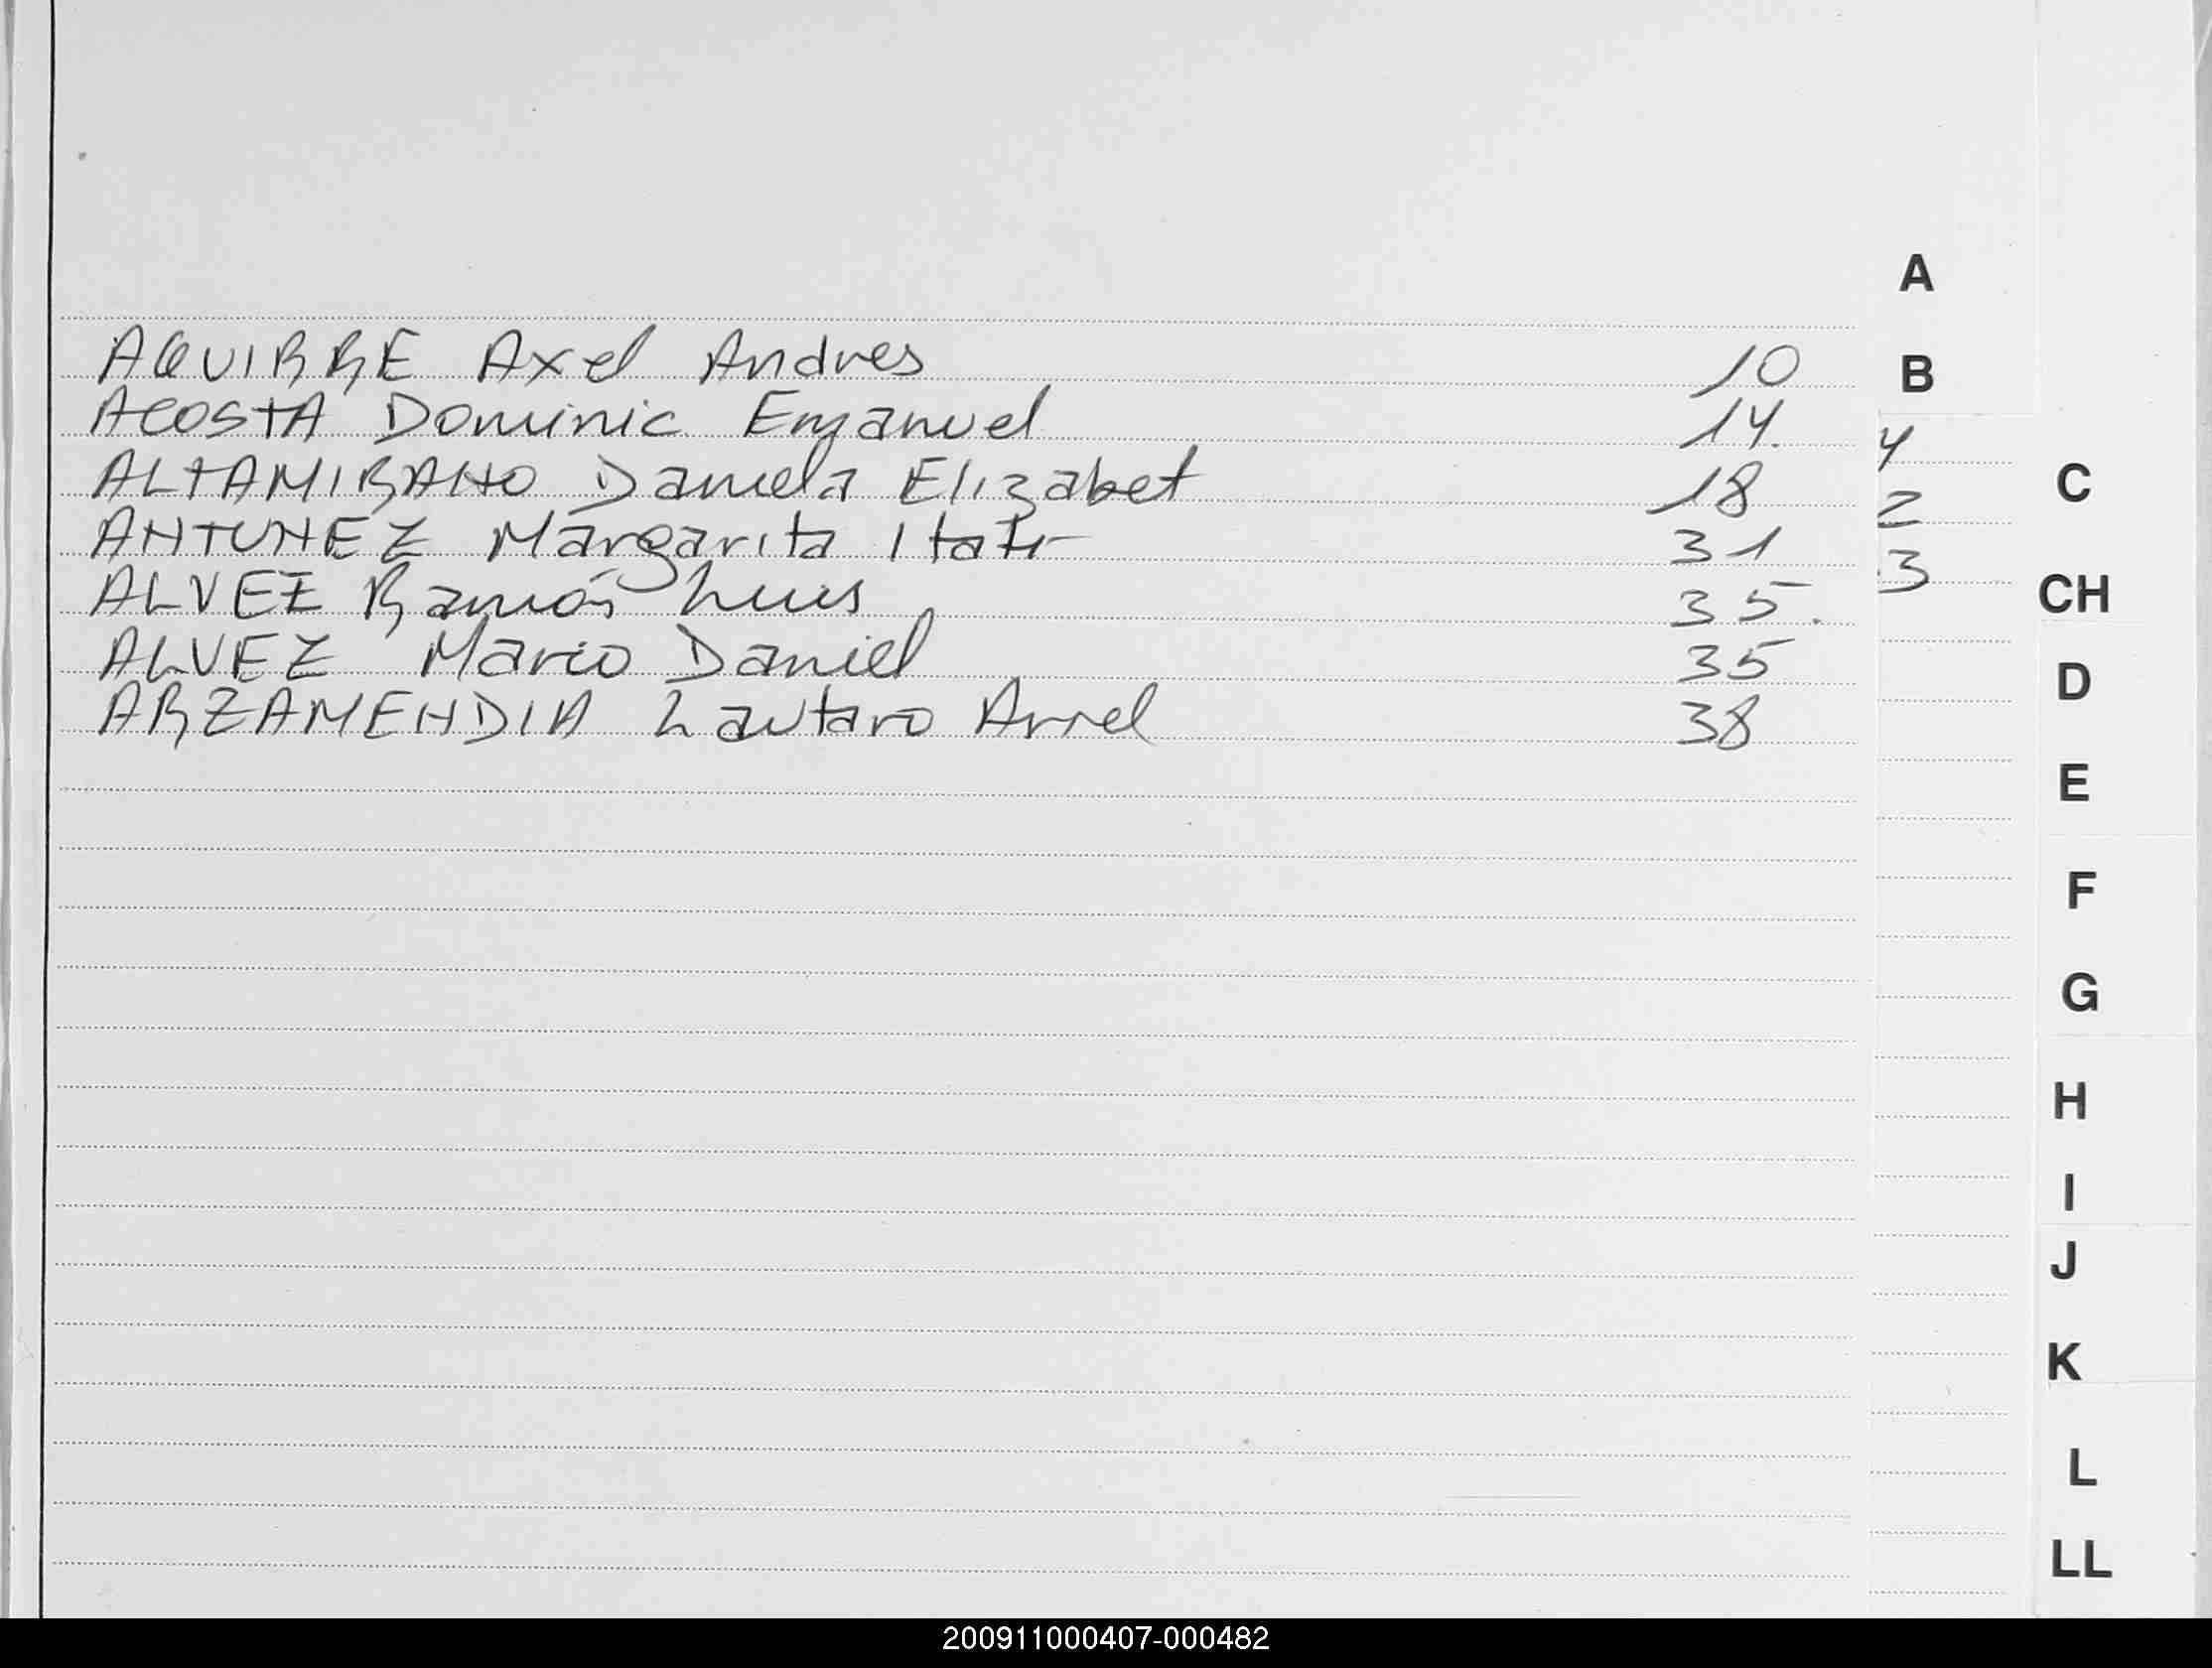 A
AGUIRRE Axel Andres 10
B
ACOSTA Dominic Emanuel 14.
4
ALTAMIRANO Daniela Elizabet 18
C
2
ANTUNEZ Margarita Itati 31
3
ALVEZ Ramón Luis 35.
CH
ALVEZ Mario Daniel 35
D
ARZAMENDIA Lautaro Ariel 38
E
F
G
H
I
J
K
L
LL
200911000407-000482